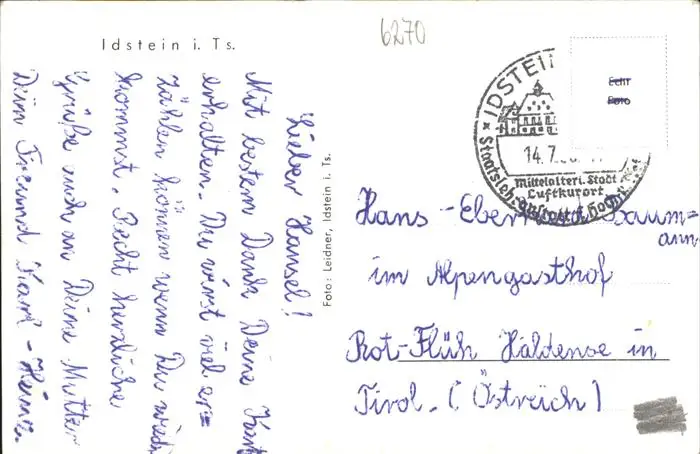 Idstein i. Ts.
6270
Echt
Foto
IDSTEIN
14.7.
Mittelalterl. Stadt
Luftkurort
Lieber Hansel!
Mit bestem Dank Deine Kart
erhalten. Du wirst viel er=
zählen können wenn Du wied
kommst. Recht herzliche
Grüße auch an Deine Mutter
Dein Freund Karl-Heinz.
Foto: Leidner, Idstein i. Ts.
Hans-Eberhard Baum=
ann
im Alpengasthof
Rot-Flüh Haldensee in
Tirol. (Östreich)